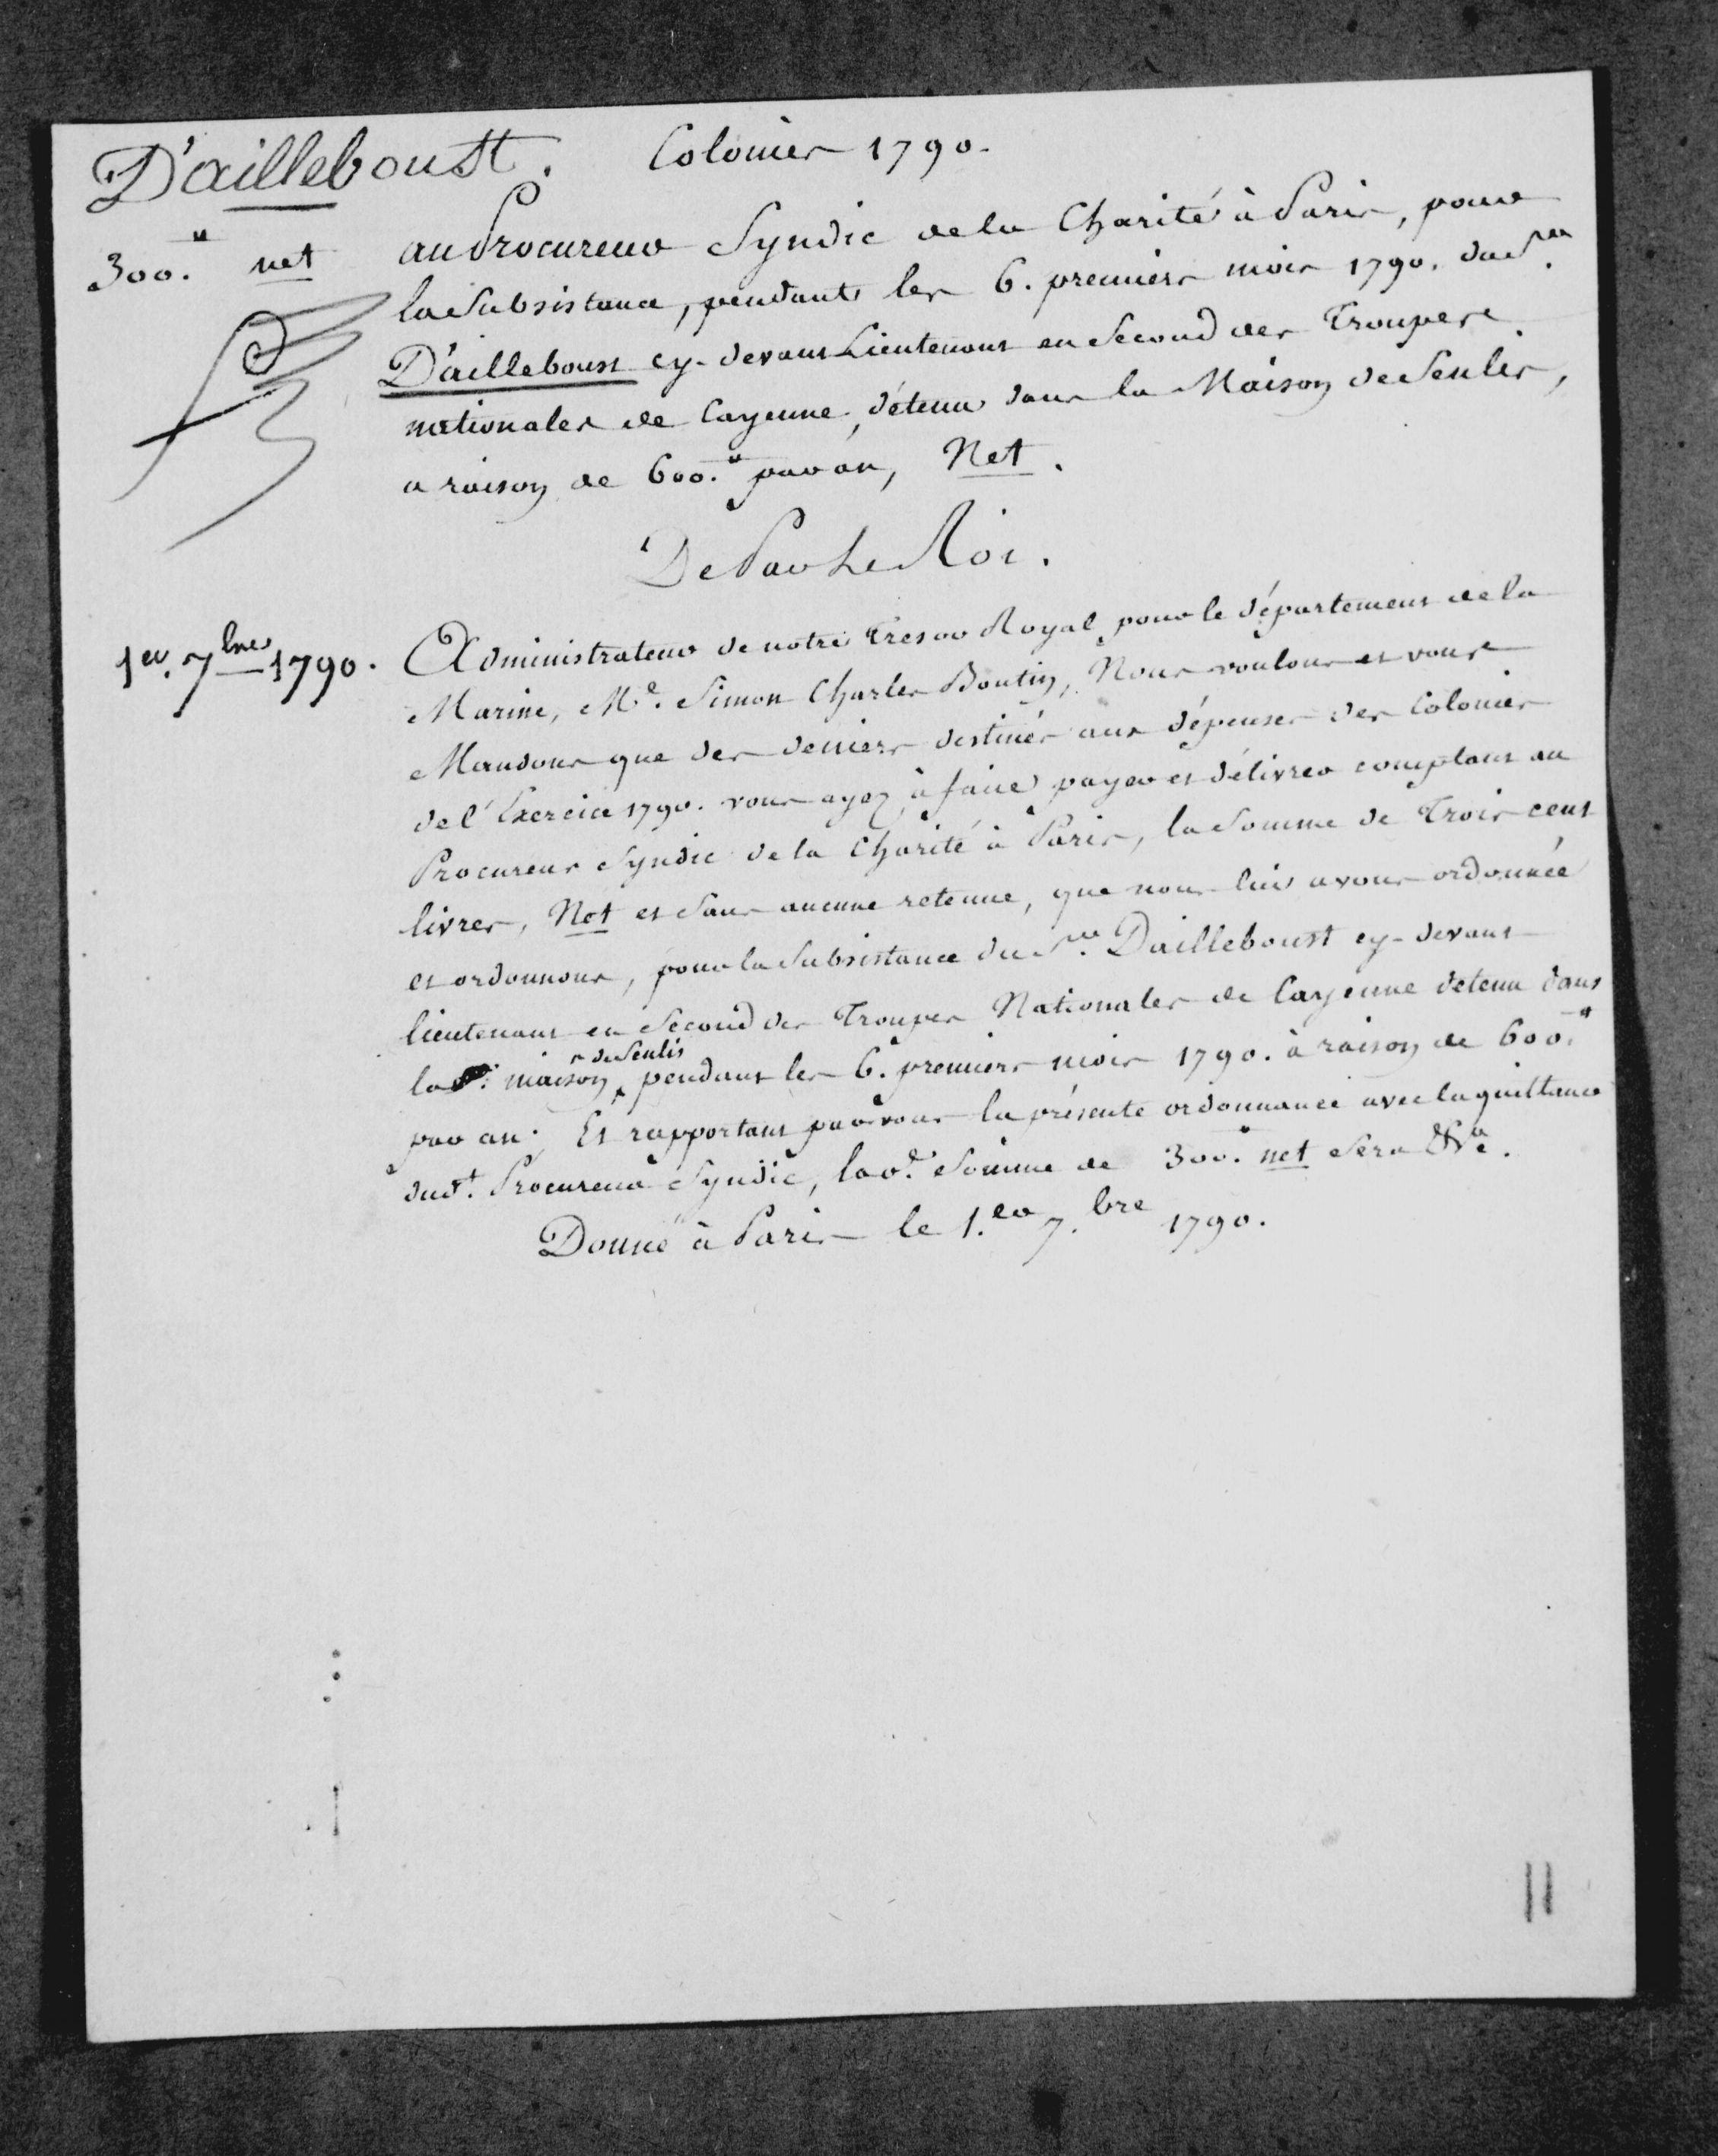 D'ailleboust. Colonies 1790.
300.ᵗᵗ net
au Procureur Syndic de la Charité à Paris, pour
la Subsistance, pendant les 6. premiers mois 1790. du S.ʳ
D'ailleboust cy-devant Lieutenant en Second des Troupes
nationales de Cayenne, détenu dans la Maison de Senlis,
a raison de 600.ᵗᵗ par an, Net.
De Par Le Roi.
1er. 7bre 1790.
Administrateur de notre Tresor Royal pour le département de la
Marine, Mᵉ. Simon Charles Boutin, Nous voulons et vous
Mandons que des deniers destinés aux dépenses des Colonies
de l'Exercice 1790. vous ayez à faire payer et délivrer comptant au
Procureur Syndic de la Charité à Paris, la Somme de Trois cent
livres, Net et Sans aucune retenue, que nous lui avons ordonnée
et ordonnons, pour la Subsistance du S.ʳ Dailleboust cy-devant
lieutenant en Second des Troupes Nationales de Cayenne detenu dans
la maison de Senlis pendant les 6. premiers mois 1790. à raison de 600.ᵗᵗ
par an; Et rapportant par vous la présente ordonnance avec la quittance
dud.ᵗ Procureur Syndic, lad.ᵉ Somme de 300.ᵗᵗ net Sera &ᵃ.
Donné à Paris le 1.er 7.bre 1790.
11